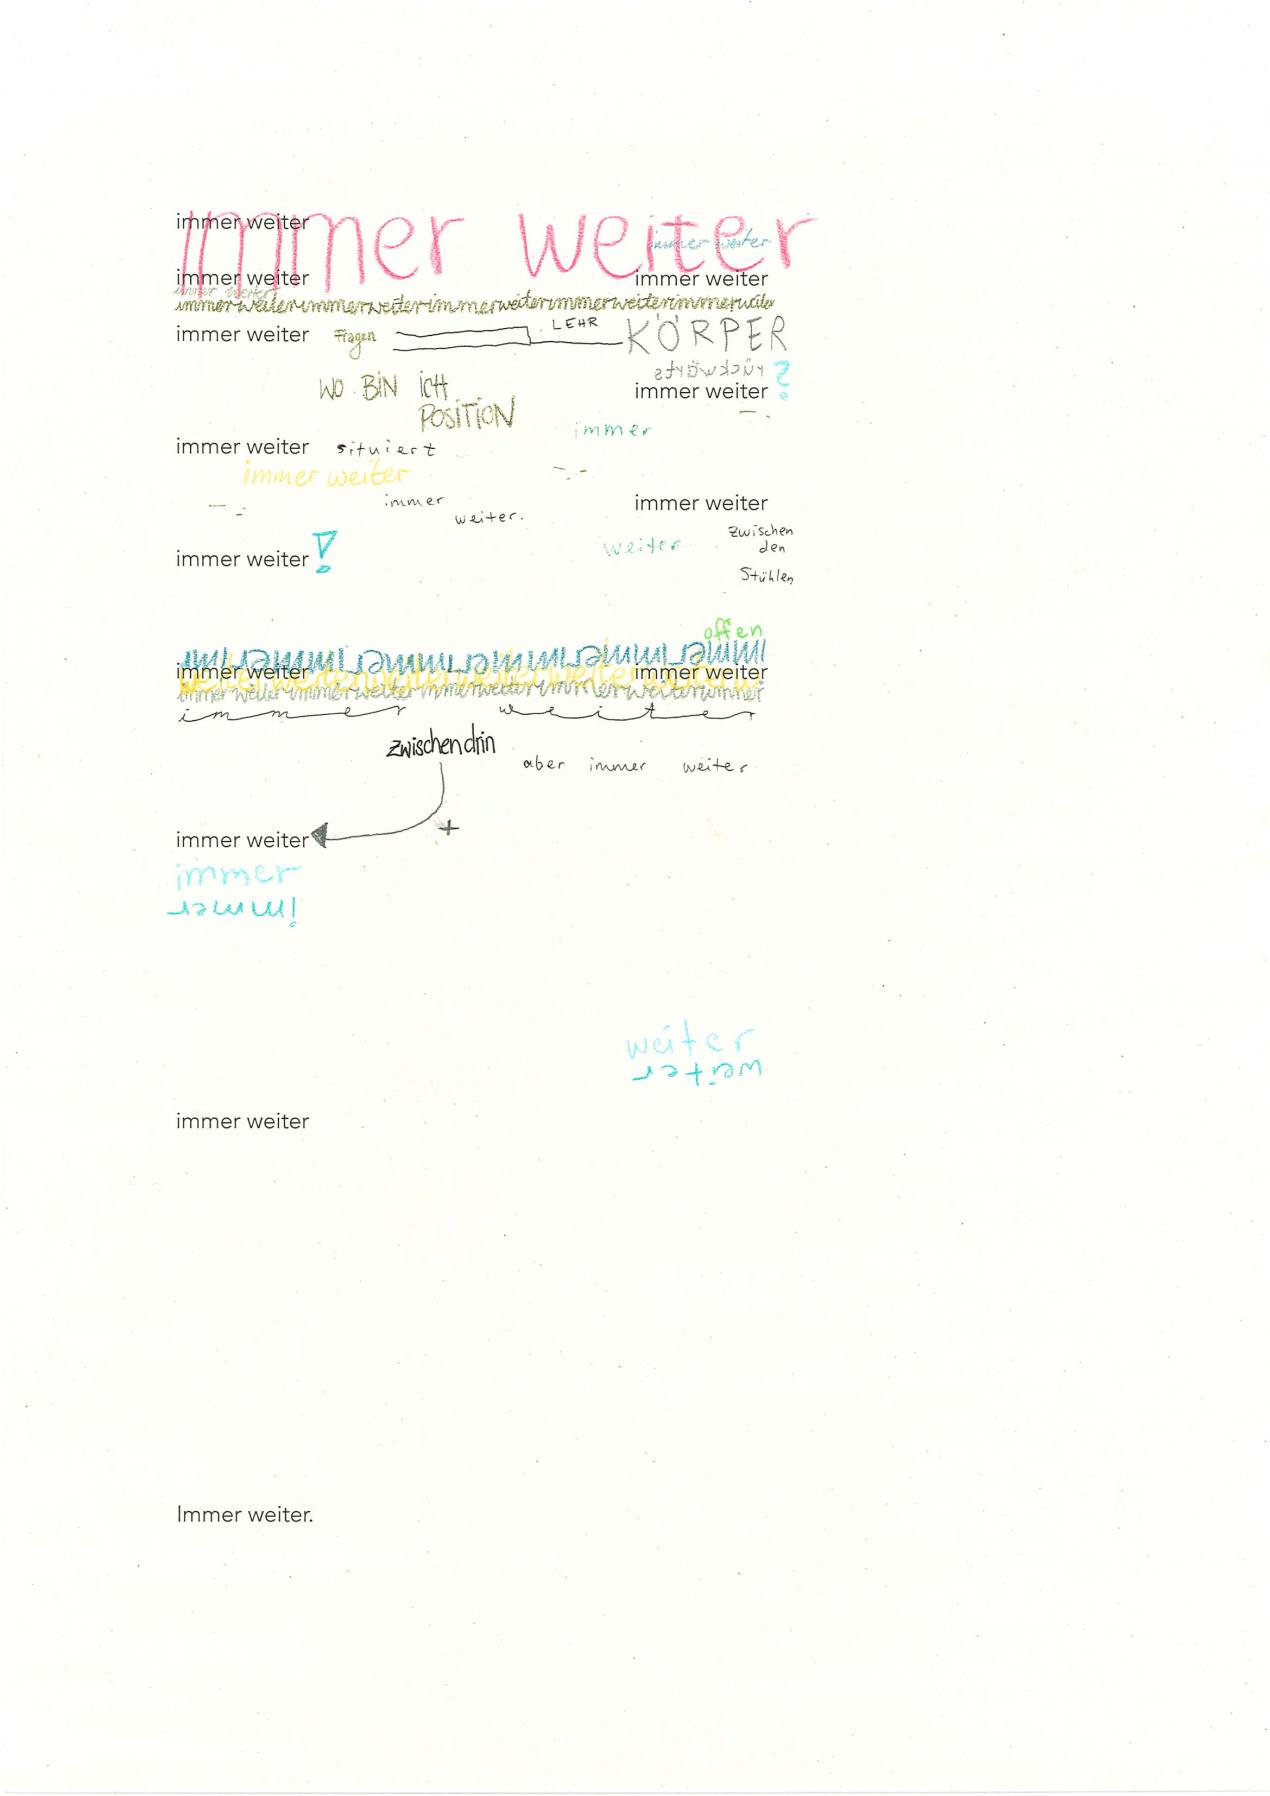 immer weiter
immer weiter
immer weiter
immer weiter immer weiter
immer weiter
immerweiterimmerweiterimmerweiterimmerweiterimmerweiter
immer weiter Fragen LEHR KÖRPER
rückwärts ?
WO BIN ICH immer weiter
POSITION
immer
immer weiter situiert
immer weiter
immer immer weiter
weiter.
zwischen
weiter den
immer weiter !
Stühlen
offen
immer immer immer immer immer imm
immer weiter immer weiter
weiter weiter weiter weiter weiter
immer weiter immer weiter immer weiter immer weiter immer
immer weiter
zwischendrin
aber immer weiter
+
immer weiter
immer
immer
weiter
weiter
immer weiter
Immer weiter.